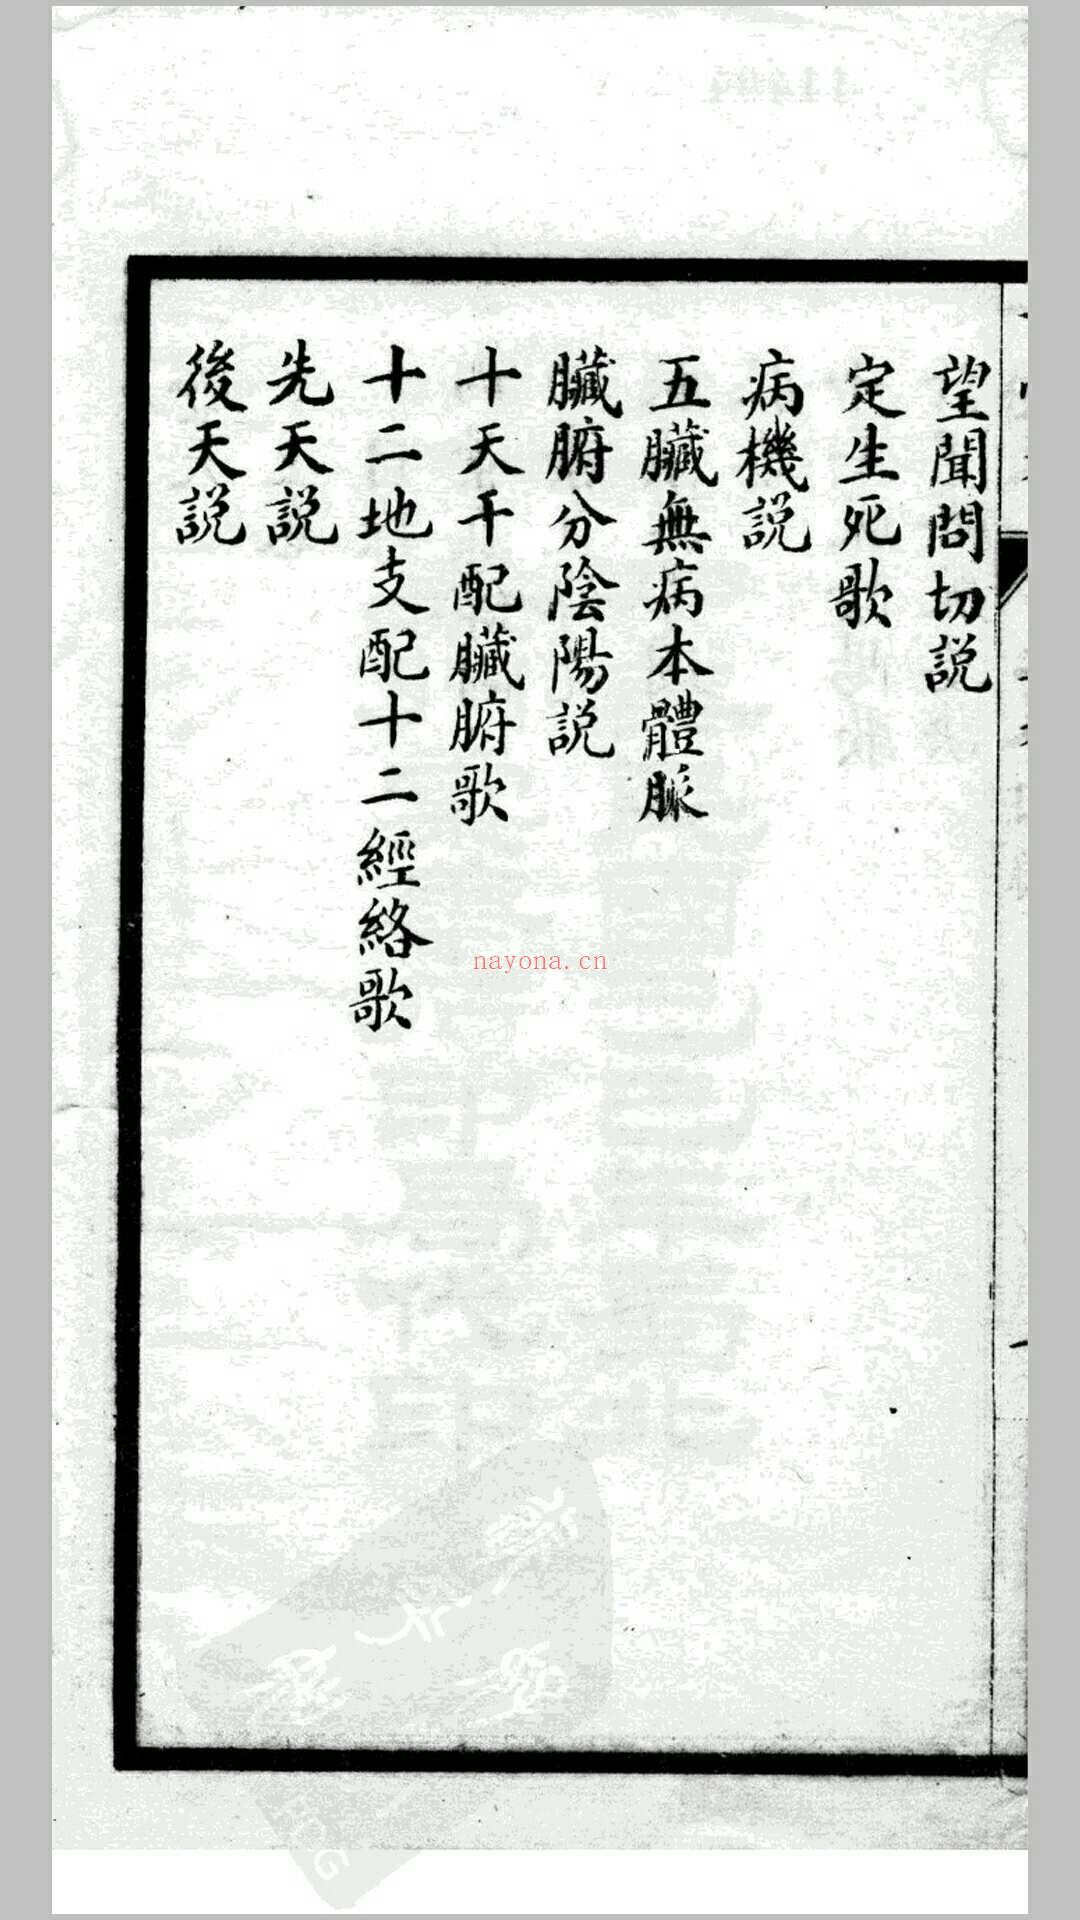 望聞問切説
定生死歌
病機説
五臟無病本體脈
臟腑分陰陽説
十天干配臟腑歌
十二地支配十二經絡歌
先天説
後天説
nayona.cn